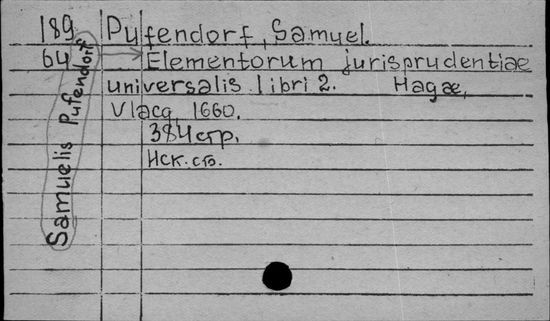 189 Pufendorf, Samuel.
64 Elementorum jurisprudentiae
universalis libri 2. Hagae,
Vlacq, 1660.
384 стр.
Samuelis Pufendorf